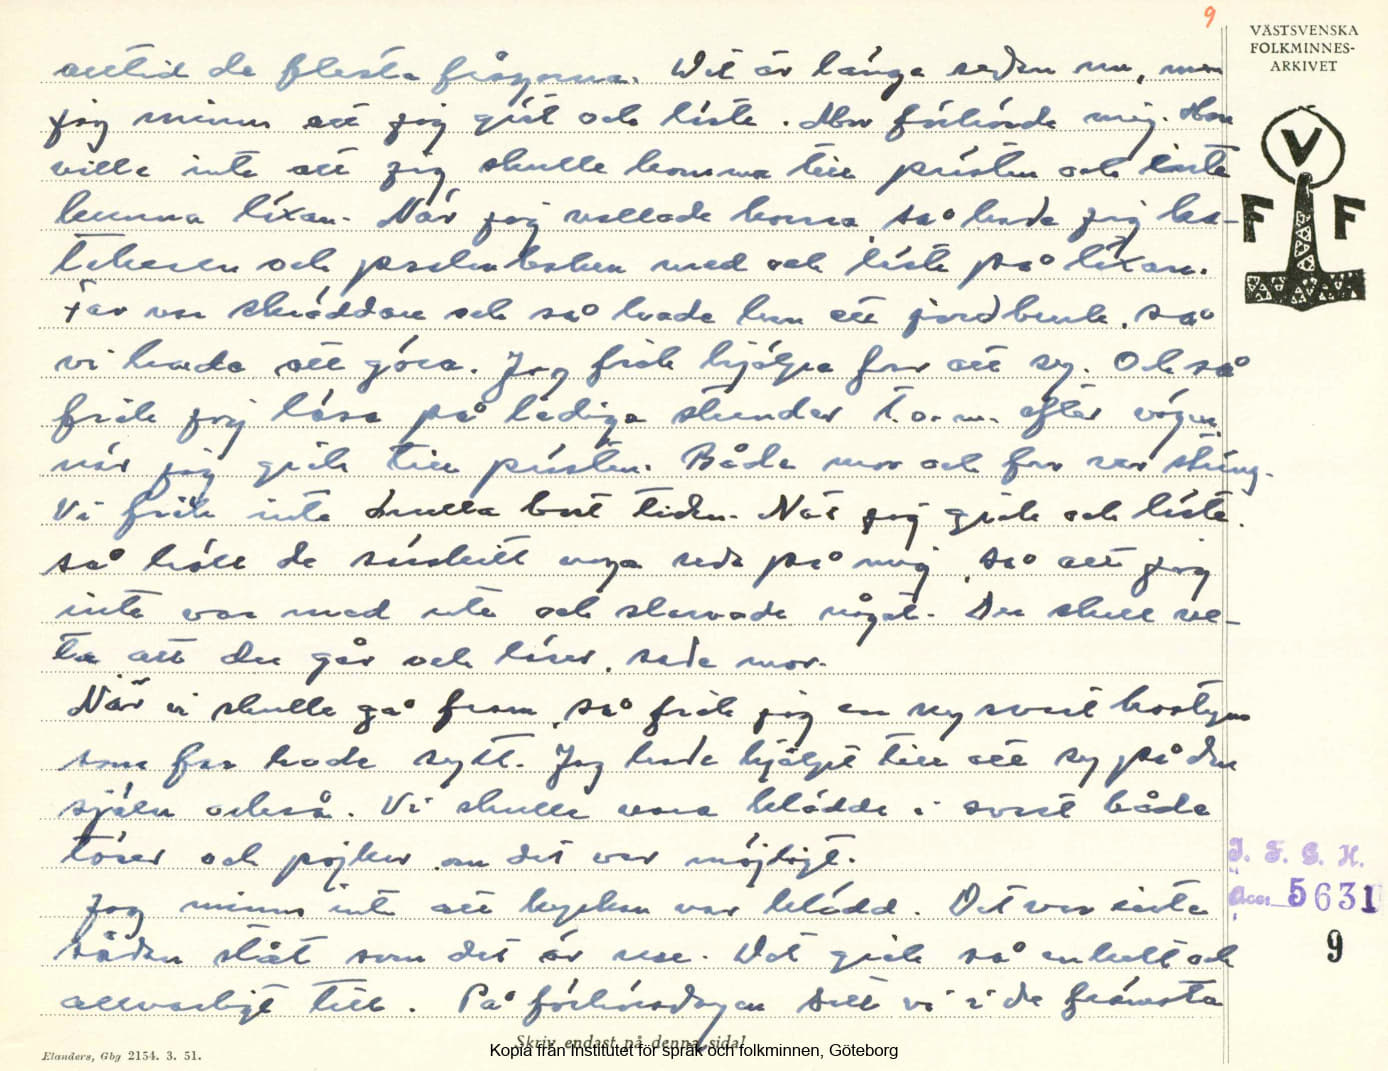 9
VÄSTSVENSKA
FOLKMINNES-
ARKIVET
V
F F
alltid de flesta frågorna. Det är länge sedan nu, men
jag minns att jag gick och läste. Mor förhörde mig. Hon
ville inte att jag skulle komma till prästen och inte
kunna läxan. När jag vallade korna, så hade jag ka-
tekesen och psalmboken med och läste på läxan.
Far var skräddare och så hade han ett jordbruk, så
vi hade att göra. Jag fick hjälpa far att sy. Och så
fick jag läsa på lediga stunder t.o.m. efter vägen,
när jag gick till prästen. Både mor och far var sträng.
Vi fick inte smulla bort tiden. När jag gick och läste,
så höll de särskilt noga reda på mig, så att jag
inte var med ute och slarvade något. Du skall ve-
ta att du går och läser, sade mor.
När vi skulle gå fram, så fick jag en ny svart kostym
som far hade sytt. Jag hade hjälpt till att sy på den
själv också. Vi skulle vara klädda i svart både
töser och pojkar om det var möjligt.
Jag minns inte att kyrkan var klädd. Det var inte
sådan ståt som det är nu. Det gick så enkelt och
allvarligt till. På förhörsdagen satt vi i de främsta
I. F. G. H.
Acc. 5631
9
Skriv endast på denna sida!
Elanders, Gbg 2154. 3. 51.
Kopia från Institutet för språk och folkminnen, Göteborg